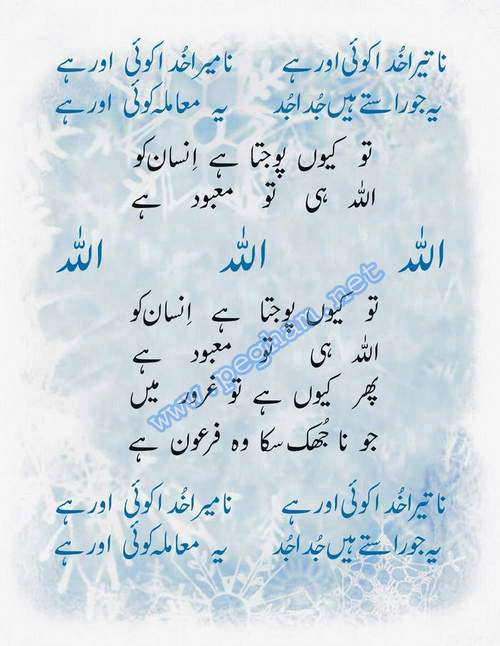 نا تیرا خُدا کوئی اور ہے نا میرا خُدا کوئی اور ہے
یہ جو راستے ہیں جُدا جُدا یہ معاملہ کوئی اور ہے
تو کیوں پوجتا ہے اِنسان کو
اللہ ہی تو معبود ہے
اللہ اللہ اللہ
تو کیوں پوجتا ہے اِنسان کو
اللہ ہی تو معبود ہے
پھر کیوں ہے تو غرور میں
جو نا جُھک سکا وہ فرعون ہے
نا تیرا خُدا کوئی اور ہے نا میرا خُدا کوئی اور ہے
یہ جو راستے ہیں جُدا جُدا یہ معاملہ کوئی اور ہے
www.pegham.net